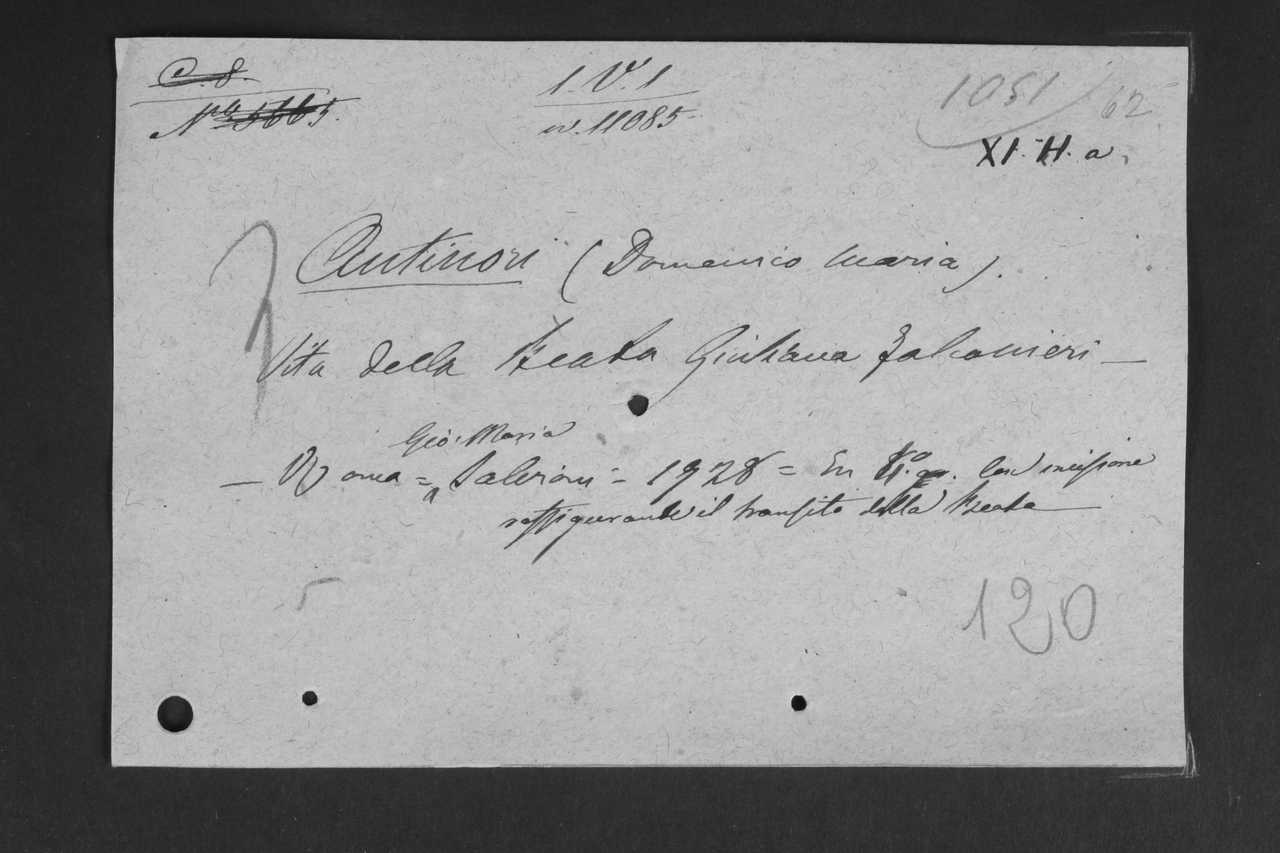 C. 8.
Nro 5665.
1. V. 1
n. 11085
1051 62
XI. H. a.
Antinori (Domenico Maria).
Vita della Beata Giuliana Falconieri —
Gio: Maria
— Roma = Salvioni = 1728 = In 4.º Con incisione
raffigurante il transito della Beata —
120